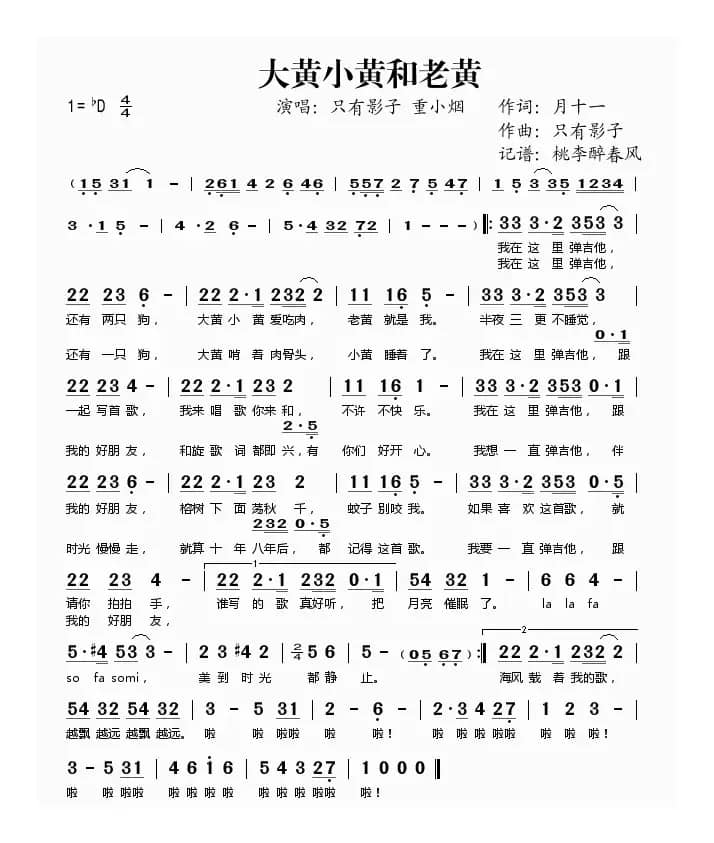 大黄小黄和老黄
1=♭D 4/4 演唱：只有影子 重小烟 作词：月十一
作曲：只有影子
记谱：桃李醉春风
（15 31 1 - | 261 4 2 6 46 | 557 2 7 5 47 | 1 5 3 35 1234 |
3 ·1 5 - | 4 ·2 6 - | 5·4 32 72 | 1 - - - ）‖: 33 3·2 353 3 |
我在 这 里 弹吉他，
我在 这 里 弹吉他，
22 23 6 - | 22 2·1 232 2 | 11 16 5 - | 33 3·2 353 3 |
还有 两只 狗， 大黄 小 黄 爱吃肉， 老黄 就是 我。 半夜 三 更 不睡觉，
0·1
还有 一只 狗， 大黄 哨 着 肉骨头， 小黄 睡着 了。 我在 这 里 弹吉他， 跟
22 23 4 - | 22 2·1 23 2 | 11 16 1 - | 33 3·2 353 0·1 |
一起 写首 歌， 我来 唱 歌 你来 和， 不许 不快 乐。 我在 这 里 弹吉他， 跟
2·5
我的 好朋 友， 和旋 歌 词 都即 兴，有 你们 好开 心。 我想 一 直 弹吉他， 伴
22 23 6 - | 22 2·1 23 2 | 11 16 5 - | 33 3·2 353 0·5 |
我的 好朋 友， 榕树 下 面 荡秋 千， 蚊子 别咬 我。 如果 喜 欢 这首歌， 就
232 0·5
时光 慢慢 走， 就算 十 年 八年后， 都 记得 这首 歌。 我要 一 直 弹吉他， 跟
1
22 23 4 - | 22 2·1 232 0·1 | 54 32 1 - | 6 6 4 - |
请你 拍拍 手， 谁写 的 歌 真好听， 把 月亮 催眠 了。 la la fa
我的 好朋 友，
2
5·#4 53 3 - | 2 3 #4 2 | 2/4 5 6 | 5 - （05 67）:‖ 22 2·1 232 2 |
so fa somi， 美 到 时 光 都 静 止。 海风 载 着 我的 歌，
54 32 54 32 | 3 - 5 31 | 2 - 6 - | 2·3 4 27 | 1 2 3 - |
越飘 越远 越飘 越远。 啦 啦 啦啦 啦 啦！ 啦 啦 啦 啦啦 啦 啦 啦！
3 - 5 31 | 4 6 1 6 | 5 4 3 27 | 1 0 0 0 ‖
啦 啦 啦啦 啦 啦 啦 啦 啦 啦 啦 啦啦 啦！